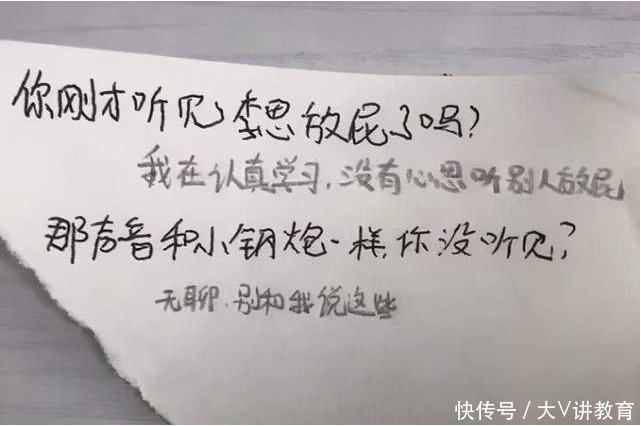 你刚才听见李思放屁了吗?
我在认真学习,没有心思听别人放屁
那声音和小钢炮一样,你没听见?
无聊.别和我说这些
快传号/大V讲教育